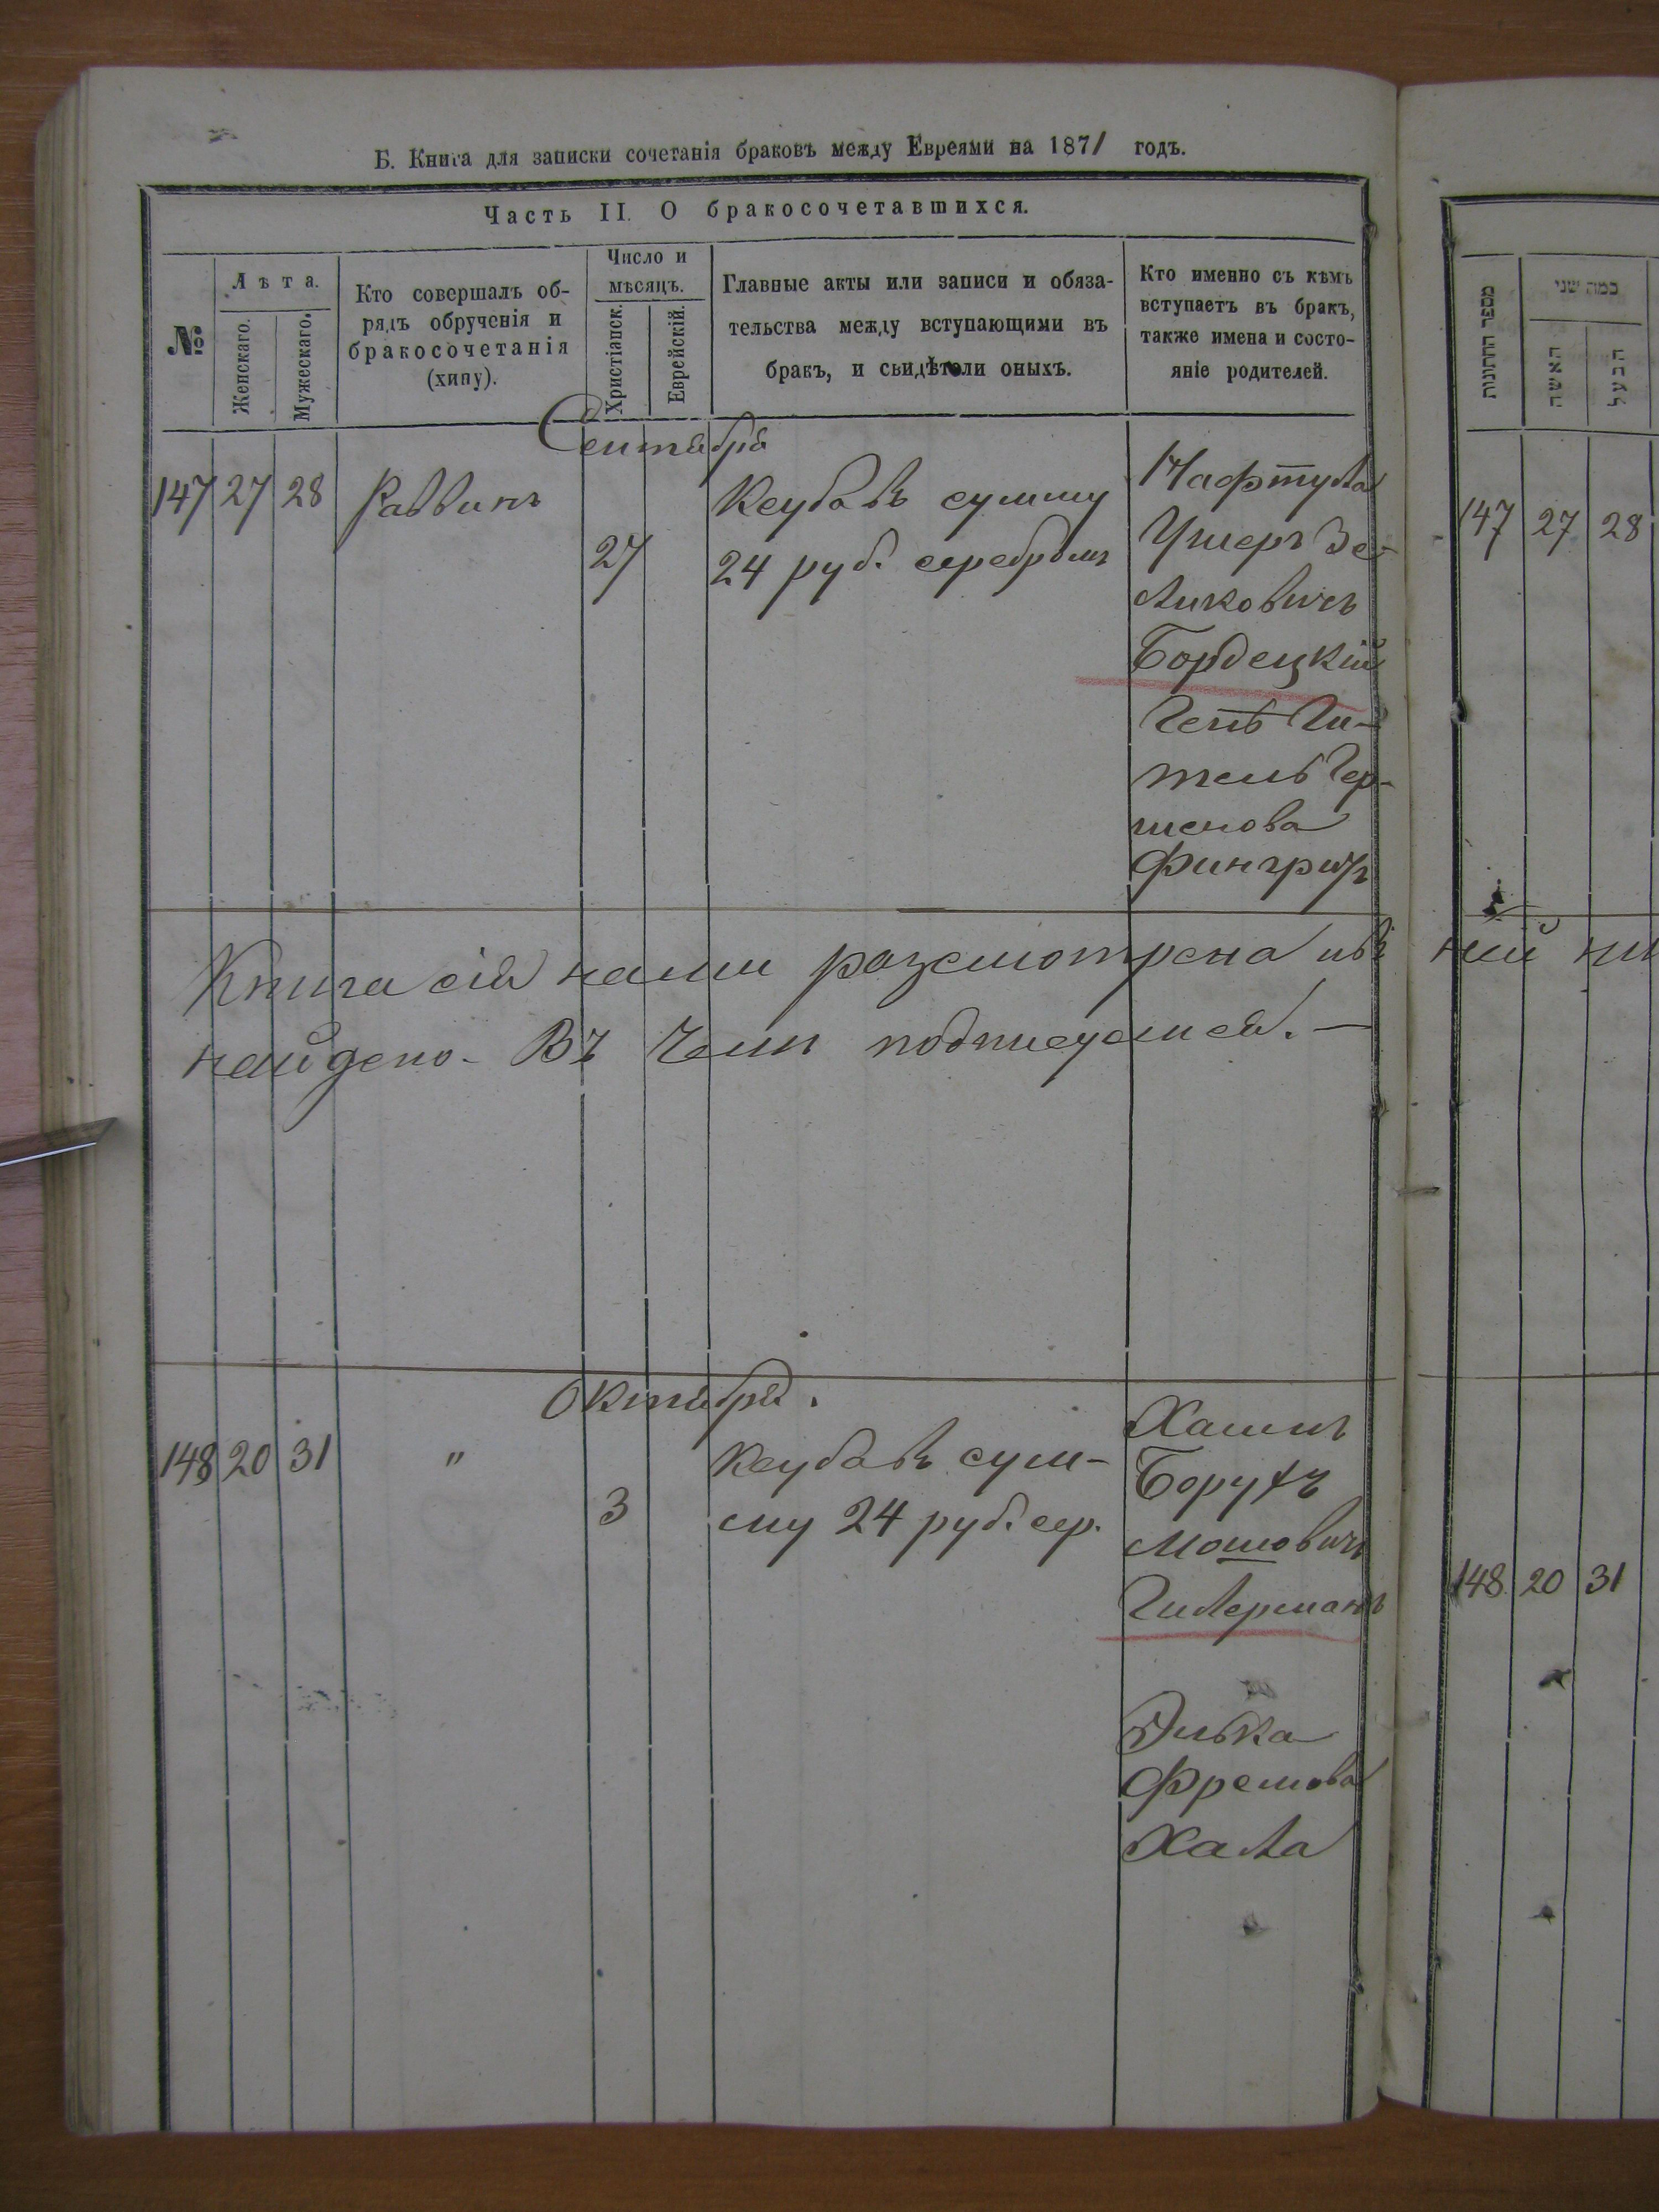 Б. Книга для записки сочетанія браковъ между Евреями на 1871 годъ.
Часть II. О бракосочетавшихся.
№
Лѣта.
Женскаго.
Мужескаго.
Кто совершалъ об-
рядъ обрученія и
бракосочетанія
(хипу).
Число и
мѣсяцъ.
Христіанск.
Еврейскій.
Главные акты или записи и обяза-
тельства между вступающими въ
бракъ, и свидѣтели оныхъ.
Кто именно съ кѣмъ
вступаетъ въ бракъ,
также имена и состо-
яніе родителей.
Сентября
147 27 28 Раввинъ
27
Ксубавъ сумму
24 руб. серебромъ
Нафтула
Ушеръ Зе-
ликовичъ
Бордецкій
Герш-
кова
Фингрутъ
Книга сія нами разсмотрена и въ
найдено. Въ чемъ подписуемся. —
Октября.
148 20 31 "
3
Ксубавъ сум-
му 24 руб. сер.
Хаимъ
Борухъ
Мошовичъ
Гилерманъ
Элька
Фремова
Хала
מספר החתונות
כמה שני
האשה
הבעל
147 27 28
ней ни
148 20 31